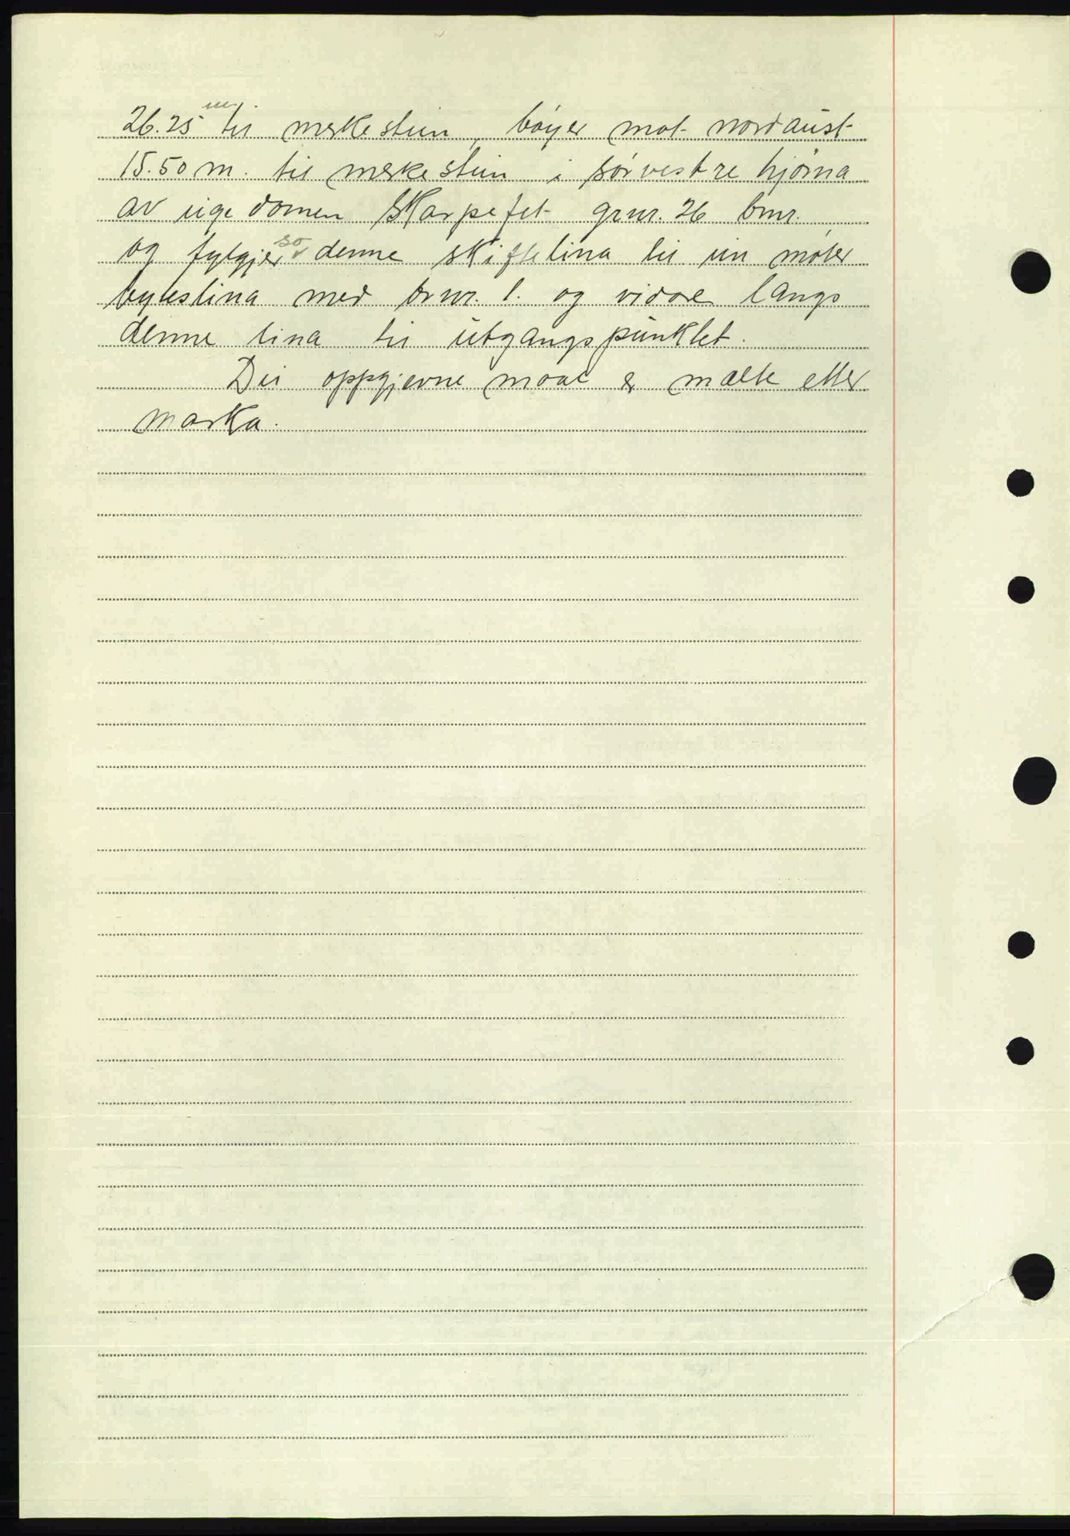 26.25 m til merkestein, bøyer mot nordaust
15.50 m. til merkestein i sørvestre hjørna
av eigedomen Skarpefet grnr. 26 bnr.
og fylgjer so denne skiftelina til ein møter
byteslina med brnr. 1. og vidare langs
denne lina til utgangspunktet.
Dei oppgjevne maal er mælte etter
marka.